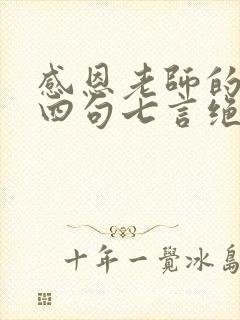 感恩老師的
四句七言绝
十年一覺冰島